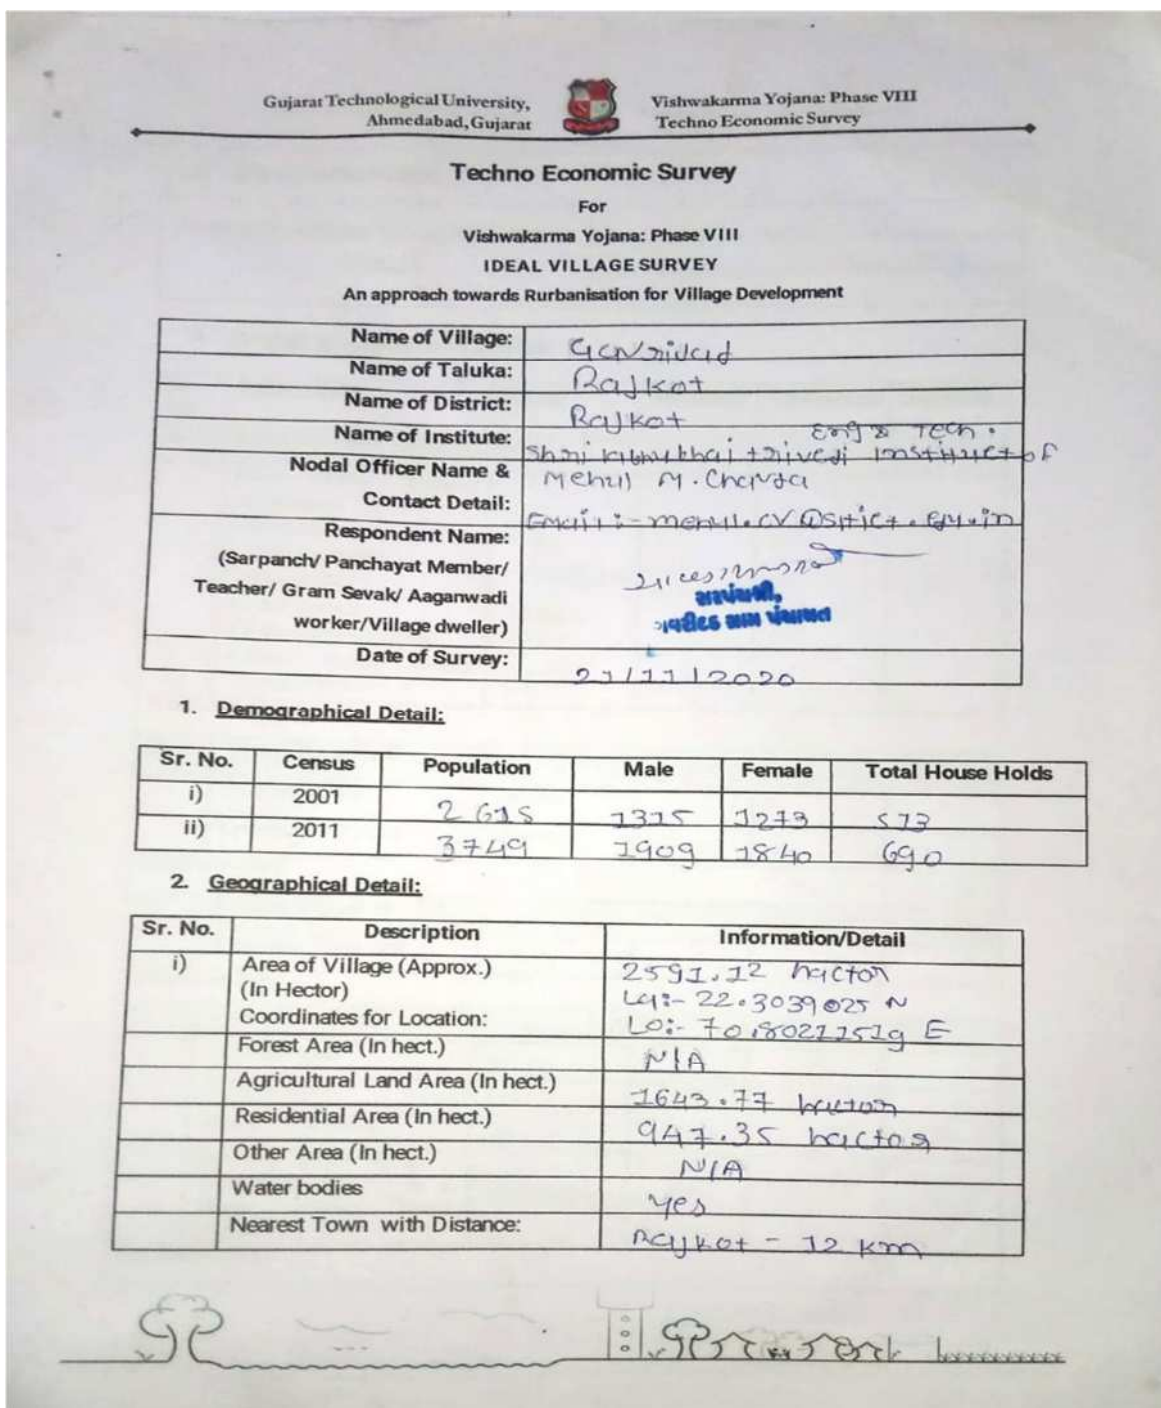 Gujarat Technological University,
Ahmedabad, Gujarat
Vishwakarma Yojana: Phase VIII
Techno Economic Survey
Techno Economic Survey
For
Vishwakarma Yojana: Phase VIII
IDEAL VILLAGE SURVEY
An approach towards Rurbanisation for Village Development
Name of Village:
Name of Taluka: Rajkot
Name of District: Rajkot
Name of Institute: Eng & Tech.
Shri trivedi institute of
Nodal Officer Name & Mehul M. Chavda
Contact Detail: Email :-
Respondent Name:
(Sarpanch/ Panchayat Member/
Teacher/ Gram Sevak/ Aaganwadi
worker/Village dweller)
સરપંચશ્રી,
ગવરીદડ ગ્રામ પંચાયત
Date of Survey: 21/11/2020
1. Demographical Detail:
Sr. No. Census Population Male Female Total House Holds
i) 2001 2615 1315 1273 513
ii) 2011 3749 1909 1840 690
2. Geographical Detail:
Sr. No. Description Information/Detail
i) Area of Village (Approx.) 2591.12 hactor
(In Hector) La:- 22.3039025 N
Coordinates for Location: Lo:- 70.8021151g E
Forest Area (In hect.) N/A
Agricultural Land Area (In hect.) 1643.77 hactor
Residential Area (In hect.) 947.35 hactor
Other Area (In hect.) N/A
Water bodies yes
Nearest Town with Distance: Rajkot - 12 km